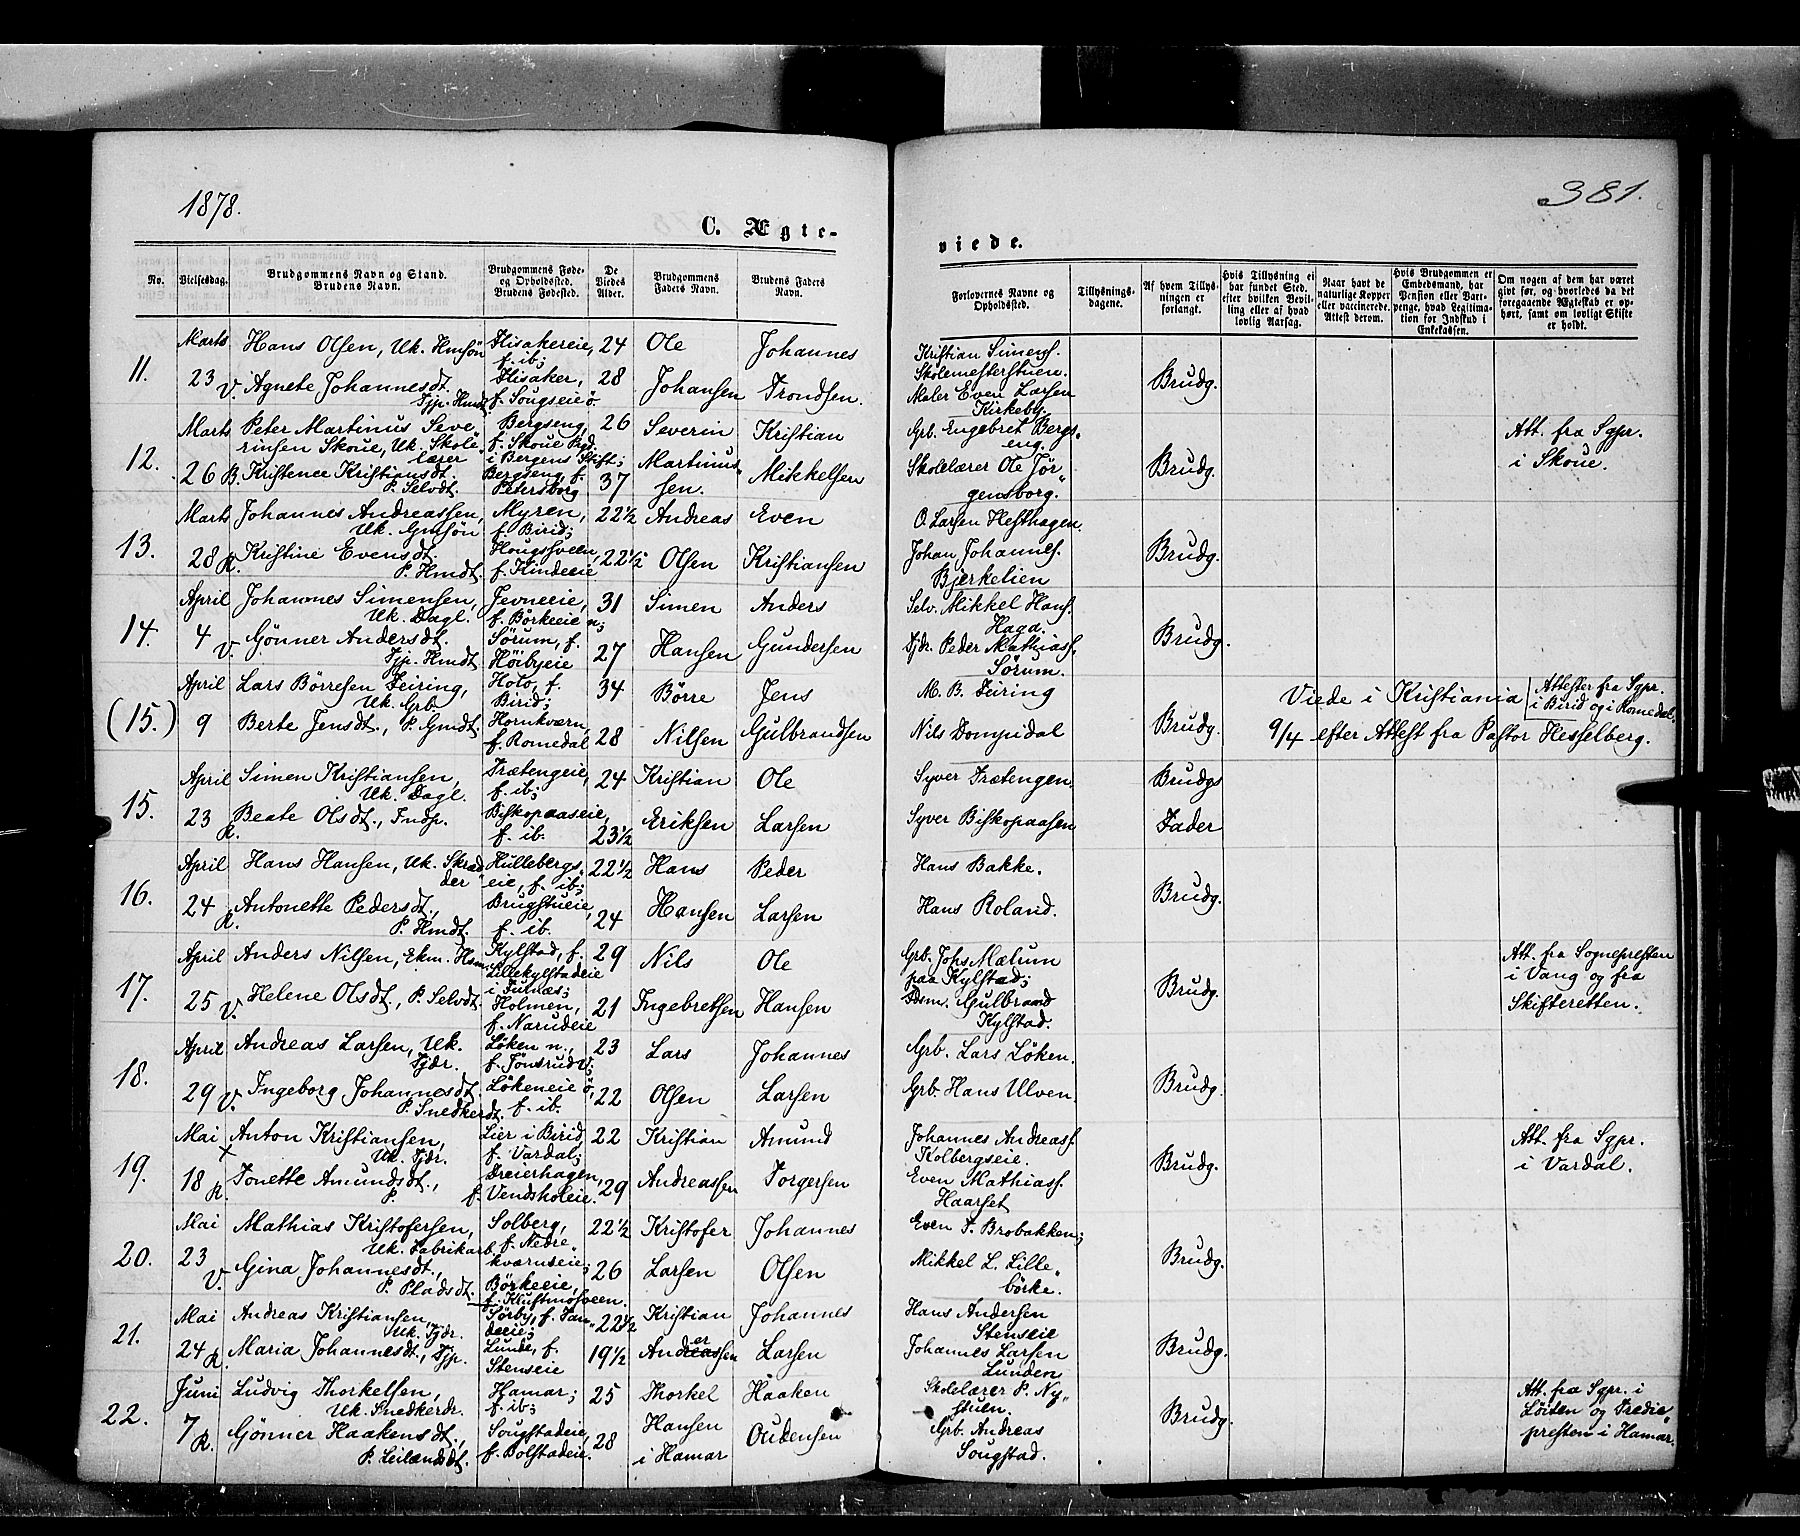 1878.
381.
C. Ægte-
viede.
No.
Vielsesdag.
Brudgommens Navn og Stand.
Brudens Navn.
Brudgommens Føde-
og Opholdssted.
Brudens Fødested.
De
Viedes
Alder.
Brudgommens
Faders Navn.
Brudens Faders
Navn.
Forlovernes Navne og
Opholdssted.
Tillysnings-
dagene.
Af hvem Tillys-
ningen er
forlangt.
Hvis Tillysning ei
har fundet Sted,
efter hvilken Bevil-
ling eller af hvad
lovlig Aarsag.
Naar havt de
naturlige Kopper
eller vaccinerede.
Attest derom.
Hvis Brudgommen er
Embedsmand, har
Pension eller Vart-
penge, hvad Legitima-
tion for Indskud i
Enkekassen.
Om nogen af dem har været
gift før, og hvorledes da det
foregaaende Ægteskab er op-
hørt, samt om lovligt Skifte
er holdt.
11.
Marts
23 V.
Hans Olsen, Uk. Hmsön
Agnete Johannesdt.
Tjp. Hmdt.
Flisakereie,
f. ib;
Flisaker,
f. Sougseie ö.
24
28
Ole
Johansen
Johannes
Trondsen.
Kristian Simens.
Skolemesterstuen.
Maler Even Larsen
Kirkeby.
Brudg.
12.
Marts
26 B.
Peter Martinus Seve-
rinsen Skoue, Uk. Skole-
lærer
Kristence Kristiansdt.
P. Selvdt.
Bergseng,
f. Skoue Pgd.
i Bergens Stift;
Bergseng, f.
Petersborg
26
37
Severin
Martinus-
sen.
Kristian
Mikkelsen
Grb. Engebret Bergs-
eng.
Skolelærer Ole Jör-
gensborg.
Brudg.
Att. fra Sgpr.
i Skoue.
13.
Marts
28 R.
Johannes Andreassen,
Uk. Gmsön
Kristine Evensdt.
P. Hmdt.
Myren,
f. Birid;
Hougsveen,
f. Kindeeie
22½
22½
Andreas
Olsen
Even
Kristiansen
O. Larsen Hesthagen.
Johan Johannes.
Bjerkelien
Brudg.
14.
April
4 V.
Johannes Simensen,
Uk. Dagl.
Gönner Andersdt.
Tjp. Hmdt.
Jevneeie,
f. Börkeeie n;
Sörum, f.
Höibyeie
31
27
Simen
Hansen
Anders
Gundersen
Selv. Mikkel Hans.
Haga.
Tjdr. Peder Mathias.
Sörum.
Brudg.
(15.)
April
9
Lars Börresen Feiring,
Uk. Grb.
Berte Jensdt., P. Gmdt.
Holo, f.
Birid;
Hornkværn,
f. Romedal
34
28
Börre
Nilsen
Jens
Gulbrandsen
M. B. Feiring
Nils Dompidal
Brudg.
Viede i Kristiania
9/4 efter Attest fra Pastor Hesselberg.
Attester fra Sgpr.
i Birid og i Romedal.
15.
April
23 R.
Simen Kristiansen,
Uk. Dagl.
Beate Olsdt., Indp.
Trætengeie,
f. ib;
Biskopaaseie,
f. ib.
24
23½
Kristian
Eriksen
Ole
Larsen
Syver Trætengen.
Syver Biskopaasen
Brudgs
Fader
16.
April
24 R.
Hans Hansen, Uk. Skræd-
der
Antonette Pedersdt.,
P. Hmdt.
Hullebergs-
eie, f. ib;
Brugstueie,
f. ib.
22½
24
Hans
Hansen
Peder
Larsen
Hans Bakke.
Hans Roland.
Brudg.
17.
April
25 V.
Anders Nilsen, Ekm. Hsm.
Helene Olsdt., P. Selvdt.
Kylstad, f.
Lillekylstadeie
i Furnæs;
Holmen,
f. Narudeie
29
21
Nils
Ingebretsen
Ole
Hansen
Grb. Johs Mælum
paa Kylstad;
Gulbrand
Kylstad.
Brudg.
Att. fra Sognepresten
i Vang og fra
Skifteretten.
18.
April
29 V.
Andreas Larsen, Uk.
Tjdr.
Ingeborg Johannesdt.
P. Snedkerdt.
Löken n.,
f. Tönsrud v;
Lökeneie ö,
f. ib.
23
22
Lars
Olsen
Johannes
Larsen
Grb. Lars Löken.
Grb. Hans Ulven.
Brudg.
19.
Mai
18 R.
Anton Kristiansen,
Uk. Tjdr.
Tonette Amundsdt.,
P.
Lier i Birid,
f. Vardal;
Dreierhagen,
f. Vendsholeie.
22
29
Kristian
Andreassen
Amund
Torgersen
Johannes Andreas.
Kolbergseie.
Even Mathias.
Haarset
Brudg.
Att. fra Sgpr.
i Vardal.
20.
Mai
23 V.
Mathias Kristofersen,
Uk. Fabrikarb.
Gina Johannesdt.,
P. Pladsdt.
Solberg,
f. Nedre-
kværnseie;
Börkeeie,
f. Kruftmosveen.
22½
26
Kristofer
Larsen
Johannes
Olsen
Even T. Brobakken;
Mikkel L. Lille-
börke.
Brudg.
21.
Mai
24 R.
Andreas Kristiansen,
Uk. Tjdr.
Maria Johannesdt., Tjp.
Sörby, f. Tan-
deeie;
Lunde, f.
Stenseie
22½
19½
Kristian
Andersen
Johannes
Larsen
Hans Andersen
Stenseie
Johannes Larsen
Lunden
Brudg.
22.
Juni
7 R.
Ludvig Thorkelsen,
Uk. Snedkerdr.
Gönner Haakensdt.,
P. Leilændsdt.
Hamar;
f. ib;
Sougstadeie,
f. Dolstadeie.
25
28
Thorkel
Hansen
i Hamar
Haaken
Oudensen
Skolelærer P. Ny-
stuen.
Grb. Andreas
Sougstad.
Brudg.
Att. fra Sgpr. i
Löiten og Predie-
presten i Hamar.